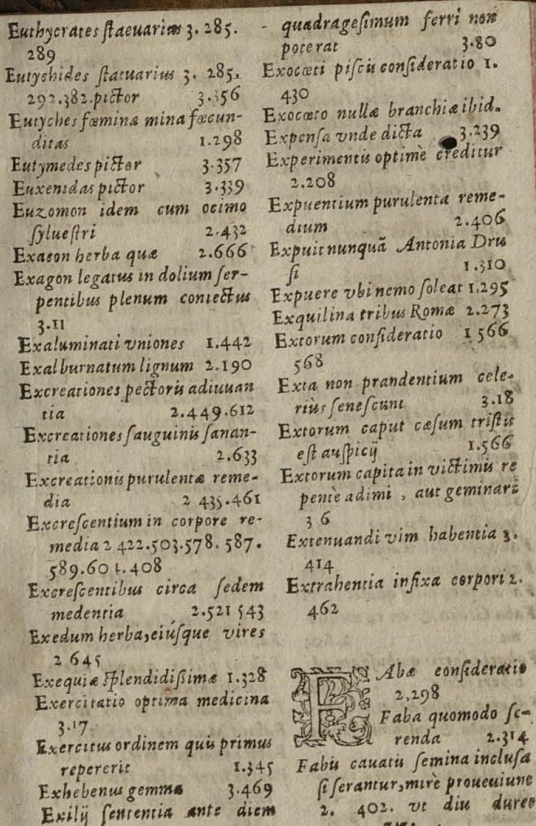 Euthycrates ſtaeuarius 3. 285.
289
Eutychides ſtatuarius 3. 285.
292.382.pictor 3.356
Eutyches fœminæ mina fœcun-
ditas 1.298
Eutymedes pictor 3.357
Euxenidas pictor 3.339
Euzomon idem cum ocimo
ſylueſtri 2.432
Exaeon herba quæ 2.666
Exagon legatus in dolium ſer-
pentibus plenum coniectus
3.11
Exaluminati vniones 1.442
Exalburnatum lignum 2.190
Excreationes pectoris adiuuan
tia 2.449.612
Excreationes ſauguinis ſanan-
tia 2.633
Excreationis purulentæ reme-
dia 2 435.461
Excreſcentium in corpore re-
media 2 422.503.578. 587.
589.604.408
Excreſcentibus circa ſedem
medentia 2.521 543
Exedum herba, eiúſque vires
2 645
Exequiæ ſplendidiſſimæ 1.328
Exercitatio optima medicina
3.17
Exercitus ordinem quis primus
repererit 1.345
Exhebenus gemma 3.469
Exilij ſententia ante diem
quadrageſimum ferri non
poterat 3.80
Exocœti piſcis conſideratio 1.
430
Exocœto nullæ branchiæ ibid.
Expenſa vnde dicta 3.239
Experimentis optimè creditur
2.208
Expuentium purulenta reme-
dium 2.406
Expuit nunquā Antonia Dru
ſi 1.310
Expuere vbi nemo ſoleat 1.295
Exquilina tribus Romæ 2.273
Extorum conſideratio 1 566
568
Exta non prandentium cele-
riùs ſeneſcunt 3.18
Extorum caput cæſum triſtis
eſt auſpicij 1.566
Extorum capita in victimis re
pentè adimi , aut geminari
3 6
Extenuandi vim habentia 3.
414
Extrahentia infixa corpori 2.
462
FAbæ conſideratio
2.298
Faba quomodo ſe-
renda 2.314
Fabis cauatis ſemina incluſa
ſi ſerantur, mirè proueniunt
2. 402. vt diu durent